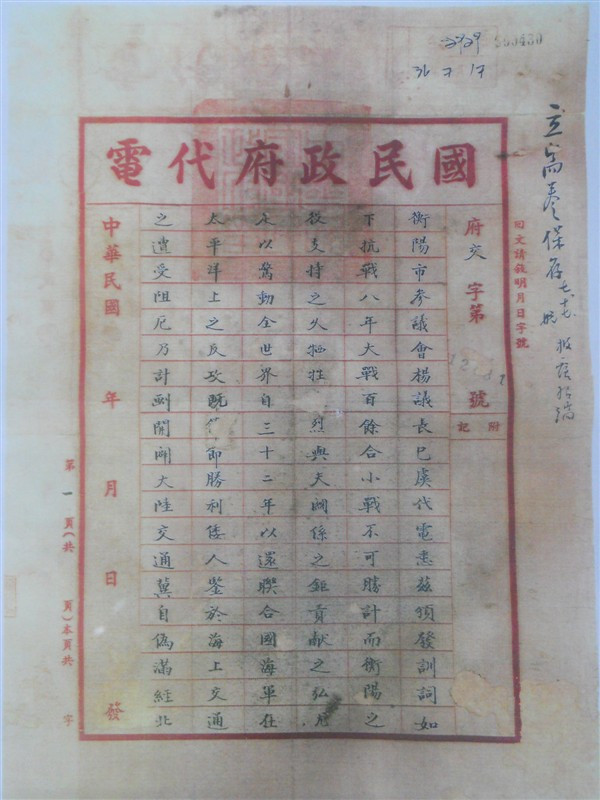 國民政府代電
府交字第
號
附記
衡陽市參議會楊議長巳虞代電悉茲頒發訓詞如
下抗戰八年大戰百餘合小戰不可勝計而衡陽之
役支持之久犧牲烈與夫關係之鉅貢獻之弘
足以驚動全世界自三十二年以還聯合國海軍在
太平洋上之反攻既即勝利倭人鑒於海上交通
之遭受阻厄乃計劃開闢大陸交通冀自偽滿經北
中華民國年月日發
第一頁(共頁)本頁共字
回文請敘明月日字號
立高卷保存
36 7 17
500430